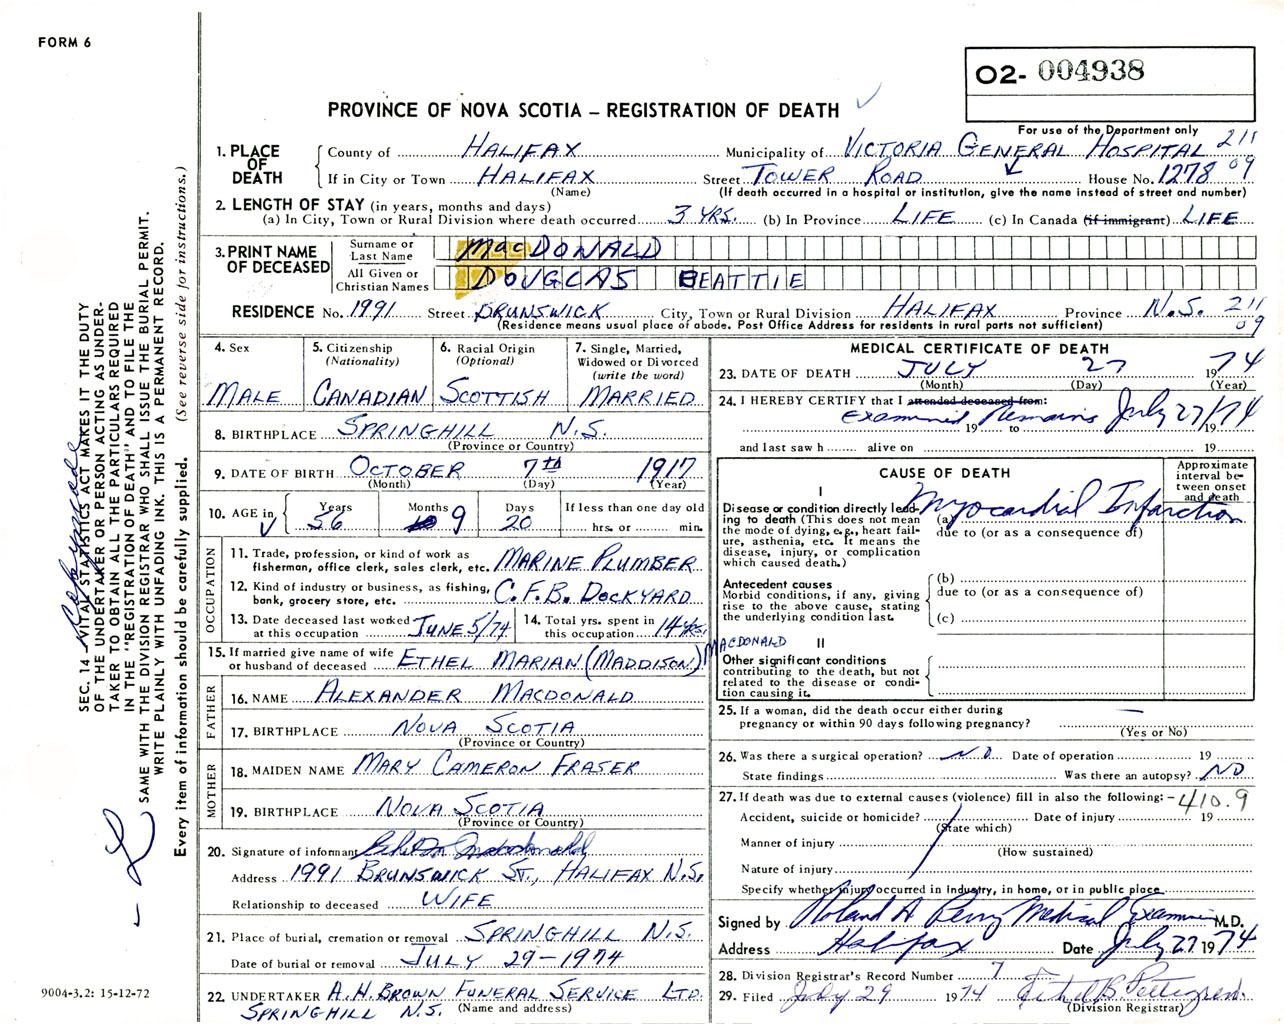 FORM 6
O2- 004938
PROVINCE OF NOVA SCOTIA – REGISTRATION OF DEATH
For use of the Department only
1. PLACE OF DEATH
County of HALIFAX Municipality of VICTORIA GENERAL HOSPITAL 211
If in City or Town HALIFAX Street TOWER ROAD House No. 1278 09
(Name) (If death occurred in a hospital or institution, give the name instead of street and number)
2. LENGTH OF STAY (in years, months and days)
(a) In City, Town or Rural Division where death occurred 3 YRS. (b) In Province LIFE (c) In Canada (if immigrant) LIFE
3. PRINT NAME OF DECEASED
Surname or Last Name MacDONALD
All Given or Christian Names DOUGLAS BEATTIE
RESIDENCE No. 1991 Street BRUNSWICK City, Town or Rural Division HALIFAX Province N.S. 211
(Residence means usual place of abode. Post Office Address for residents in rural parts not sufficient) 09
4. Sex
MALE
5. Citizenship
(Nationality)
CANADIAN
6. Racial Origin
(Optional)
SCOTTISH
7. Single, Married,
Widowed or Divorced
(write the word)
MARRIED
8. BIRTHPLACE SPRINGHILL N.S.
(Province or Country)
9. DATE OF BIRTH OCTOBER 7TH 1917
(Month) (Day) (Year)
10. AGE in
Years Months Days If less than one day old
56 9 20 hrs. or min.
OCCUPATION
11. Trade, profession, or kind of work as
fisherman, office clerk, sales clerk, etc. MARINE PLUMBER
12. Kind of industry or business, as fishing,
bank, grocery store, etc. C.F.B. DOCKYARD
13. Date deceased last worked
at this occupation JUNE 5/74
14. Total yrs. spent in
this occupation 14 YRS.
15. If married give name of wife
or husband of deceased ETHEL MARIAN (MADDISON) MACDONALD
FATHER
16. NAME ALEXANDER MACDONALD
17. BIRTHPLACE NOVA SCOTIA
(Province or Country)
MOTHER
18. MAIDEN NAME MARY CAMERON FRASER
19. BIRTHPLACE NOVA SCOTIA
(Province or Country)
20. Signature of informant
Address 1991 BRUNSWICK ST., HALIFAX N.S.
Relationship to deceased WIFE
21. Place of burial, cremation or removal SPRINGHILL N.S.
Date of burial or removal JULY 29-1974
22. UNDERTAKER A.H. BROWN FUNERAL SERVICE LTD.
SPRINGHILL N.S. (Name and address)
MEDICAL CERTIFICATE OF DEATH
23. DATE OF DEATH JULY 27 1974
(Month) (Day) (Year)
24. I HEREBY CERTIFY that I attended deceased from:
Examined Remains July 27/74
19 to 19
and last saw h alive on 19
CAUSE OF DEATH
Approximate
interval be-
tween onset
and death
I
Disease or condition directly lead-
ing to death (This does not mean
the mode of dying, e.g., heart fail-
ure, asthenia, etc. It means the
disease, injury, or complication
which caused death.)
(a) Myocardial Infarction
due to (or as a consequence of)
Antecedent causes
Morbid conditions, if any, giving
rise to the above cause, stating
the underlying condition last.
(b)
due to (or as a consequence of)
(c)
II
Other significant conditions
contributing to the death, but not
related to the disease or condi-
tion causing it.
25. If a woman, did the death occur either during
pregnancy or within 90 days following pregnancy? —
(Yes or No)
26. Was there a surgical operation? NO Date of operation 19
State findings Was there an autopsy? NO
27. If death was due to external causes (violence) fill in also the following: - 410.9
Accident, suicide or homicide? Date of injury 19
(State which)
Manner of injury
(How sustained)
Nature of injury
Specify whether injury occurred in industry, in home, or in public place
Signed by Roland A Perry Medical Examiner M.D.
Address Halifax Date July 27 1974
28. Division Registrar's Record Number 7
29. Filed July 29 1974
(Division Registrar)
SEC. 14 – VITAL STATISTICS ACT MAKES IT THE DUTY
OF THE UNDERTAKER OR PERSON ACTING AS UNDER-
TAKER TO OBTAIN ALL THE PARTICULARS REQUIRED
IN THE "REGISTRATION OF DEATH" AND TO FILE THE
SAME WITH THE DIVISION REGISTRAR WHO SHALL ISSUE THE BURIAL PERMIT.
WRITE PLAINLY WITH UNFADING INK. THIS IS A PERMANENT RECORD.
Every item of information should be carefully supplied. (See reverse side for instructions.)
9004-3.2: 15-12-72